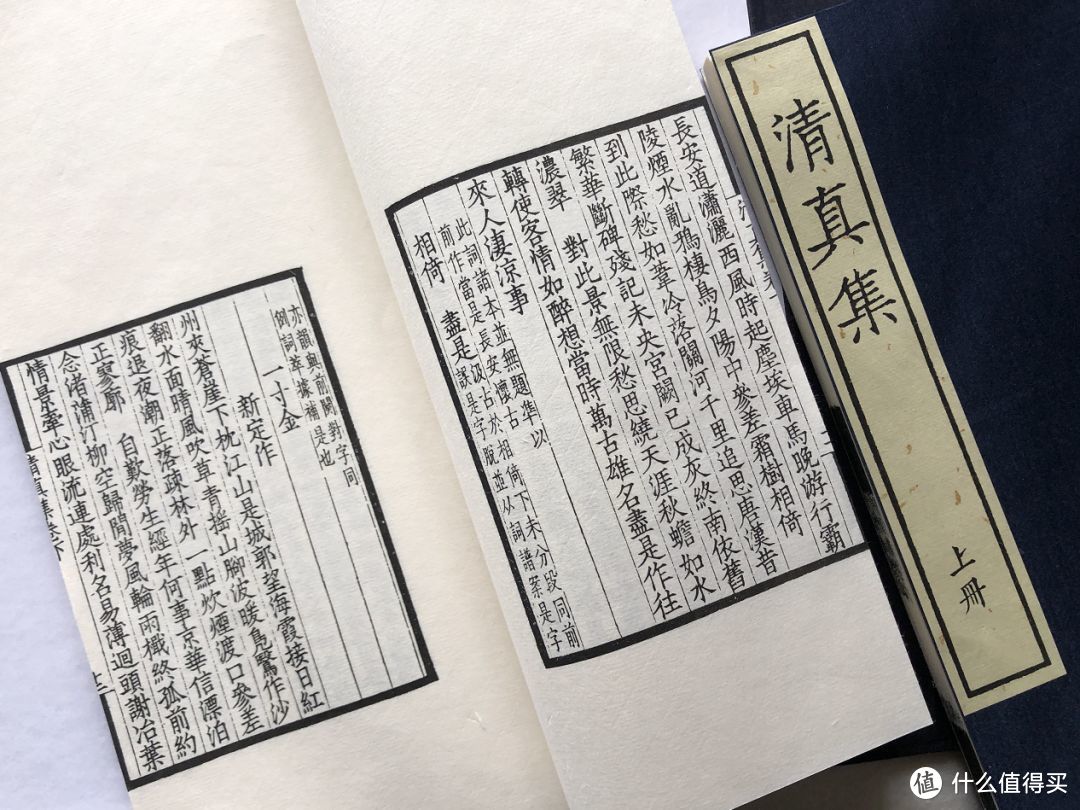 清真集
上册
長安道瀟灑西風時起塵埃車馬晚游行霸
陵煙水亂鴉棲鳥夕陽中參差霜樹相倚
到此際愁如葦冷落關河千里追思唐漢昔
繁華斷碑殘記未央宮闕已成灰終南依舊
濃翠　對此景無限愁思繞天涯秋蟾如水
轉使客情如醉想當時萬古雄名盡是作往
來人淒涼事
此詞諸本並無題準以
前作當是長安懷古
相倚　盡是
下未分段同前
從詞譜案是字
亦韻與前闋對字同
倒詞萃據補是也
一寸金
新定作
州夾蒼崖下枕江山是城郭望海霞接日紅
翻水面晴風吹草青搖山腳波暖鳧鷖作沙
痕退夜潮正落疎林外一點炊煙渡口參差
正寥廓　自歎勞生經年何事京華信漂泊
念渚蒲汀柳空歸閒夢風輪雨檝終孤前約
情景牽心眼流連處利名易薄迴頭謝冶葉
清真集卷下
值 什么值得买